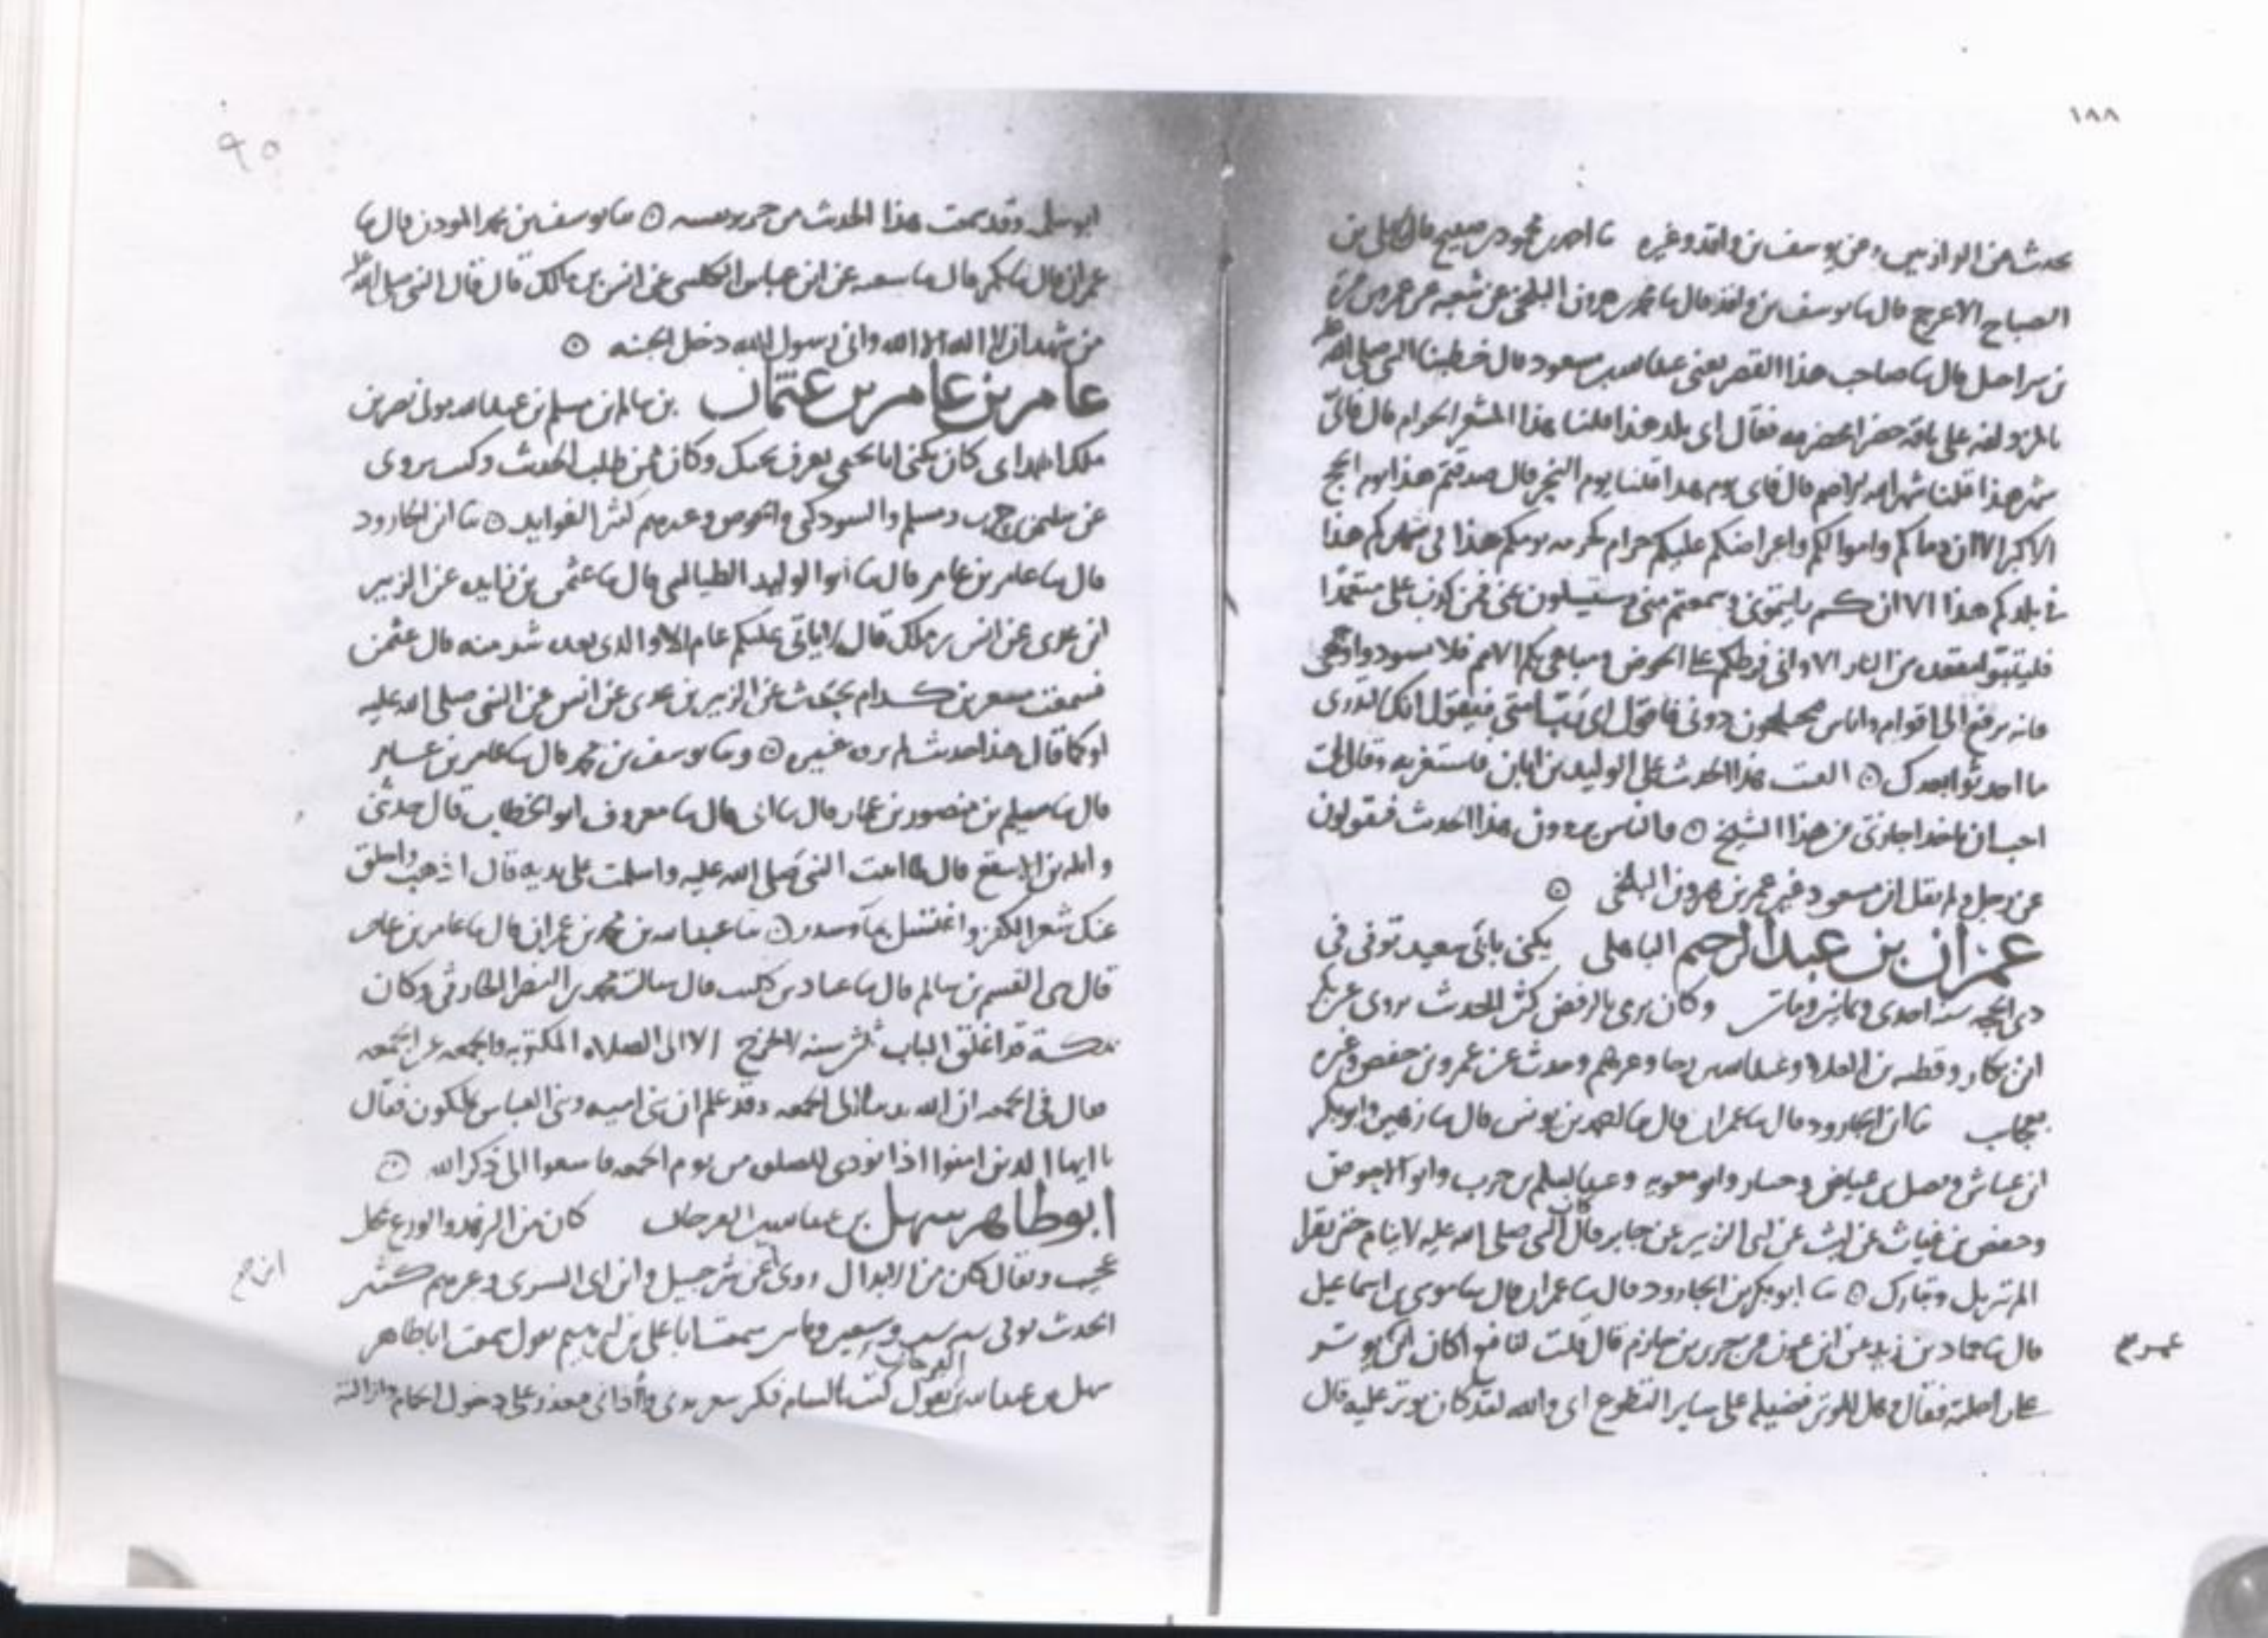 ١٨٨
يحدث عن الرازيين وعن يوسف بن واقد وغيره نا احمد بن محمود بن صبيح قال نا على بن
الصباح الاعرج قال نا يوسف بن واقد قال نا عمر بن هرون البلخي عن شعبه عن عمرو بن مرة
قال نا صاحب هذا القصر يعنى عبدالله بن مسعود قال خطبنا النبي صلى الله
على ناقة حمرا مخضرمه فقال اى بلد هذا قلنا هذا المشعر الحرام قال فاى
شهر هذا قلنا شهر الله قال فاى يوم هذا قلنا يوم النحر قال صدقتم هذا يوم الحج
الاكبر الا ان دماكم واموالكم واعراضكم عليكم حرام كحرمه يومكم هذا في شهركم هذا
في بلدكم هذا الا ان رايتموني وسمعتم مني وستسلون عني فمن كذب على متعمدا
فليتبوا مقعده من النار الا واني فرطكم على الحوض ومباهي بكم الامم فلا تسودوا وجهي
اقوام واناس دوني فاقول اى رب امتي فيقول انك لا تدرى
ما احدثوا بعدك ۞ القيت هذا الحديث على الوليد بن ابان فاستغربه وقال
هذا الشيخ ۞ والناس يروون هذا الحديث فيقولون
عن رجل ولم يقل ابن مسعود غير عمر بن هرون البلخي ۞
عمران بن عبدالرحيم الباهلي يكنى بابى سعيد توفى في
ذى الحجه سنة احدى وثمانين وماتين وكان يرمى بالرفض كثير الحديث يروى عن
ابن بكار وقطبه بن العلاء وعبدالله بن رجا وغيرهم وحدث عن عمرو بن حفص وغيره
بعجايب نا ابن الجارود قال نا عمران قال نا احمد بن يونس قال نا زهير وابوبكر
ابن عياش وفضيل بن عياض وحسان وابو معويه وعبدالسلم بن حرب وابو الاحوص
وحفص بن غياث عن ليث عن ابى الزبير عن جابر قال كان النبي صلى الله عليه لا ينام حتى يقرا
الم تنزيل وتبارك ۞ نا ابوبكر بن الجارود قال نا عمران قال نا موسى بن اسماعيل
قال نا حماد بن زيد عن ابن عون عن جرير بن حازم قال قلت لنافع اكان ابن يوتر
على راحلته فقال وهل للوتر فضيله على ساير التطوع اى والله لقد كان يوتر عليه قال
٩٥
ابو سلمه وقد سمعت هذا الحديث من جرير نفسه ۞ نا يوسف بن محمد المودن قال نا
عمران قال نا بكر قال نا شعبه عن ابن عباس الكلبى عن انس بن مالك قال قال النبي صلى الله
من شهد ان لا اله الا الله واني رسول الله دخل الجنه ۞
عامر بن عامر بن عثمان بن سالم بن مسلم بن عبدالله مولى نصر بن
ملك الهمداني كان يكنى ابا يحيى يعرف وكان ممن طلب الحديث وكتب يروى
عن سليمن بن حرب ومسلم والتبوذكي والحوضى وغيرهم كثير الفوايد ۞ نا ابن الجارود
قال نا عامر بن عامر قال نا ابو الوليد الطيالسي قال نا عثمن بن زايده عن الزبير
ابن عدى عن انس بن ملك قال لا ياتى عليكم عام الا والذى بعده شر منه قال عثمن
فسمعت مسعر بن كدام يحدث عن الزبير بن عدى عن انس عن النبي صلى الله عليه
او كما قال هذا حديث لم يروه غيره ۞ ونا يوسف بن محمد قال نا عامر بن عامر
قال نا سليم بن منصور بن عمار قال نا ابى قال نا معروف ابو الخطاب قال حدثنى
واثله بن الاسقع قال لما اتيت النبي صلى الله عليه واسلمت على يديه قال اذهب واحلق
عنك شعر الكفر واغتسل بماء وسدر ۞ نا عبدالله بن محمد بن عمران قال نا عامر بن عامر
قال نا القسم بن سالم قال نا عباد بن كليب قال سالت محمد بن النضر الحارثى وكان
قد اغلق الباب لا يخرج الا الى الصلاه المكتوبه والجمعه عن الجمعه
فقال في الجمعه ان الله ندبنا الى الجمعه وقد علم ان بنى اميه وبنى العباس يملكون فقال
يا ايها الذين امنوا اذا نودى للصلوه من يوم الجمعه فاسعوا الى ذكر الله ۞
ابو طاهر سهل بن عبدالله الفرخان كان من الزهد والورع بمحل
عجيب ويقال كان من الابدال روى عن شرحبيل وابن ابى السرى وغيرهم كثير
الحديث توفى سنه ست وسبعين وماتين سمعت ابا على بن ابرهيم يقول سمعت اباطاهر
سهل بن عبدالله بن الفرخان يقول كنت بالشام فكثر شعر بدنى واذانى دخول الحمام